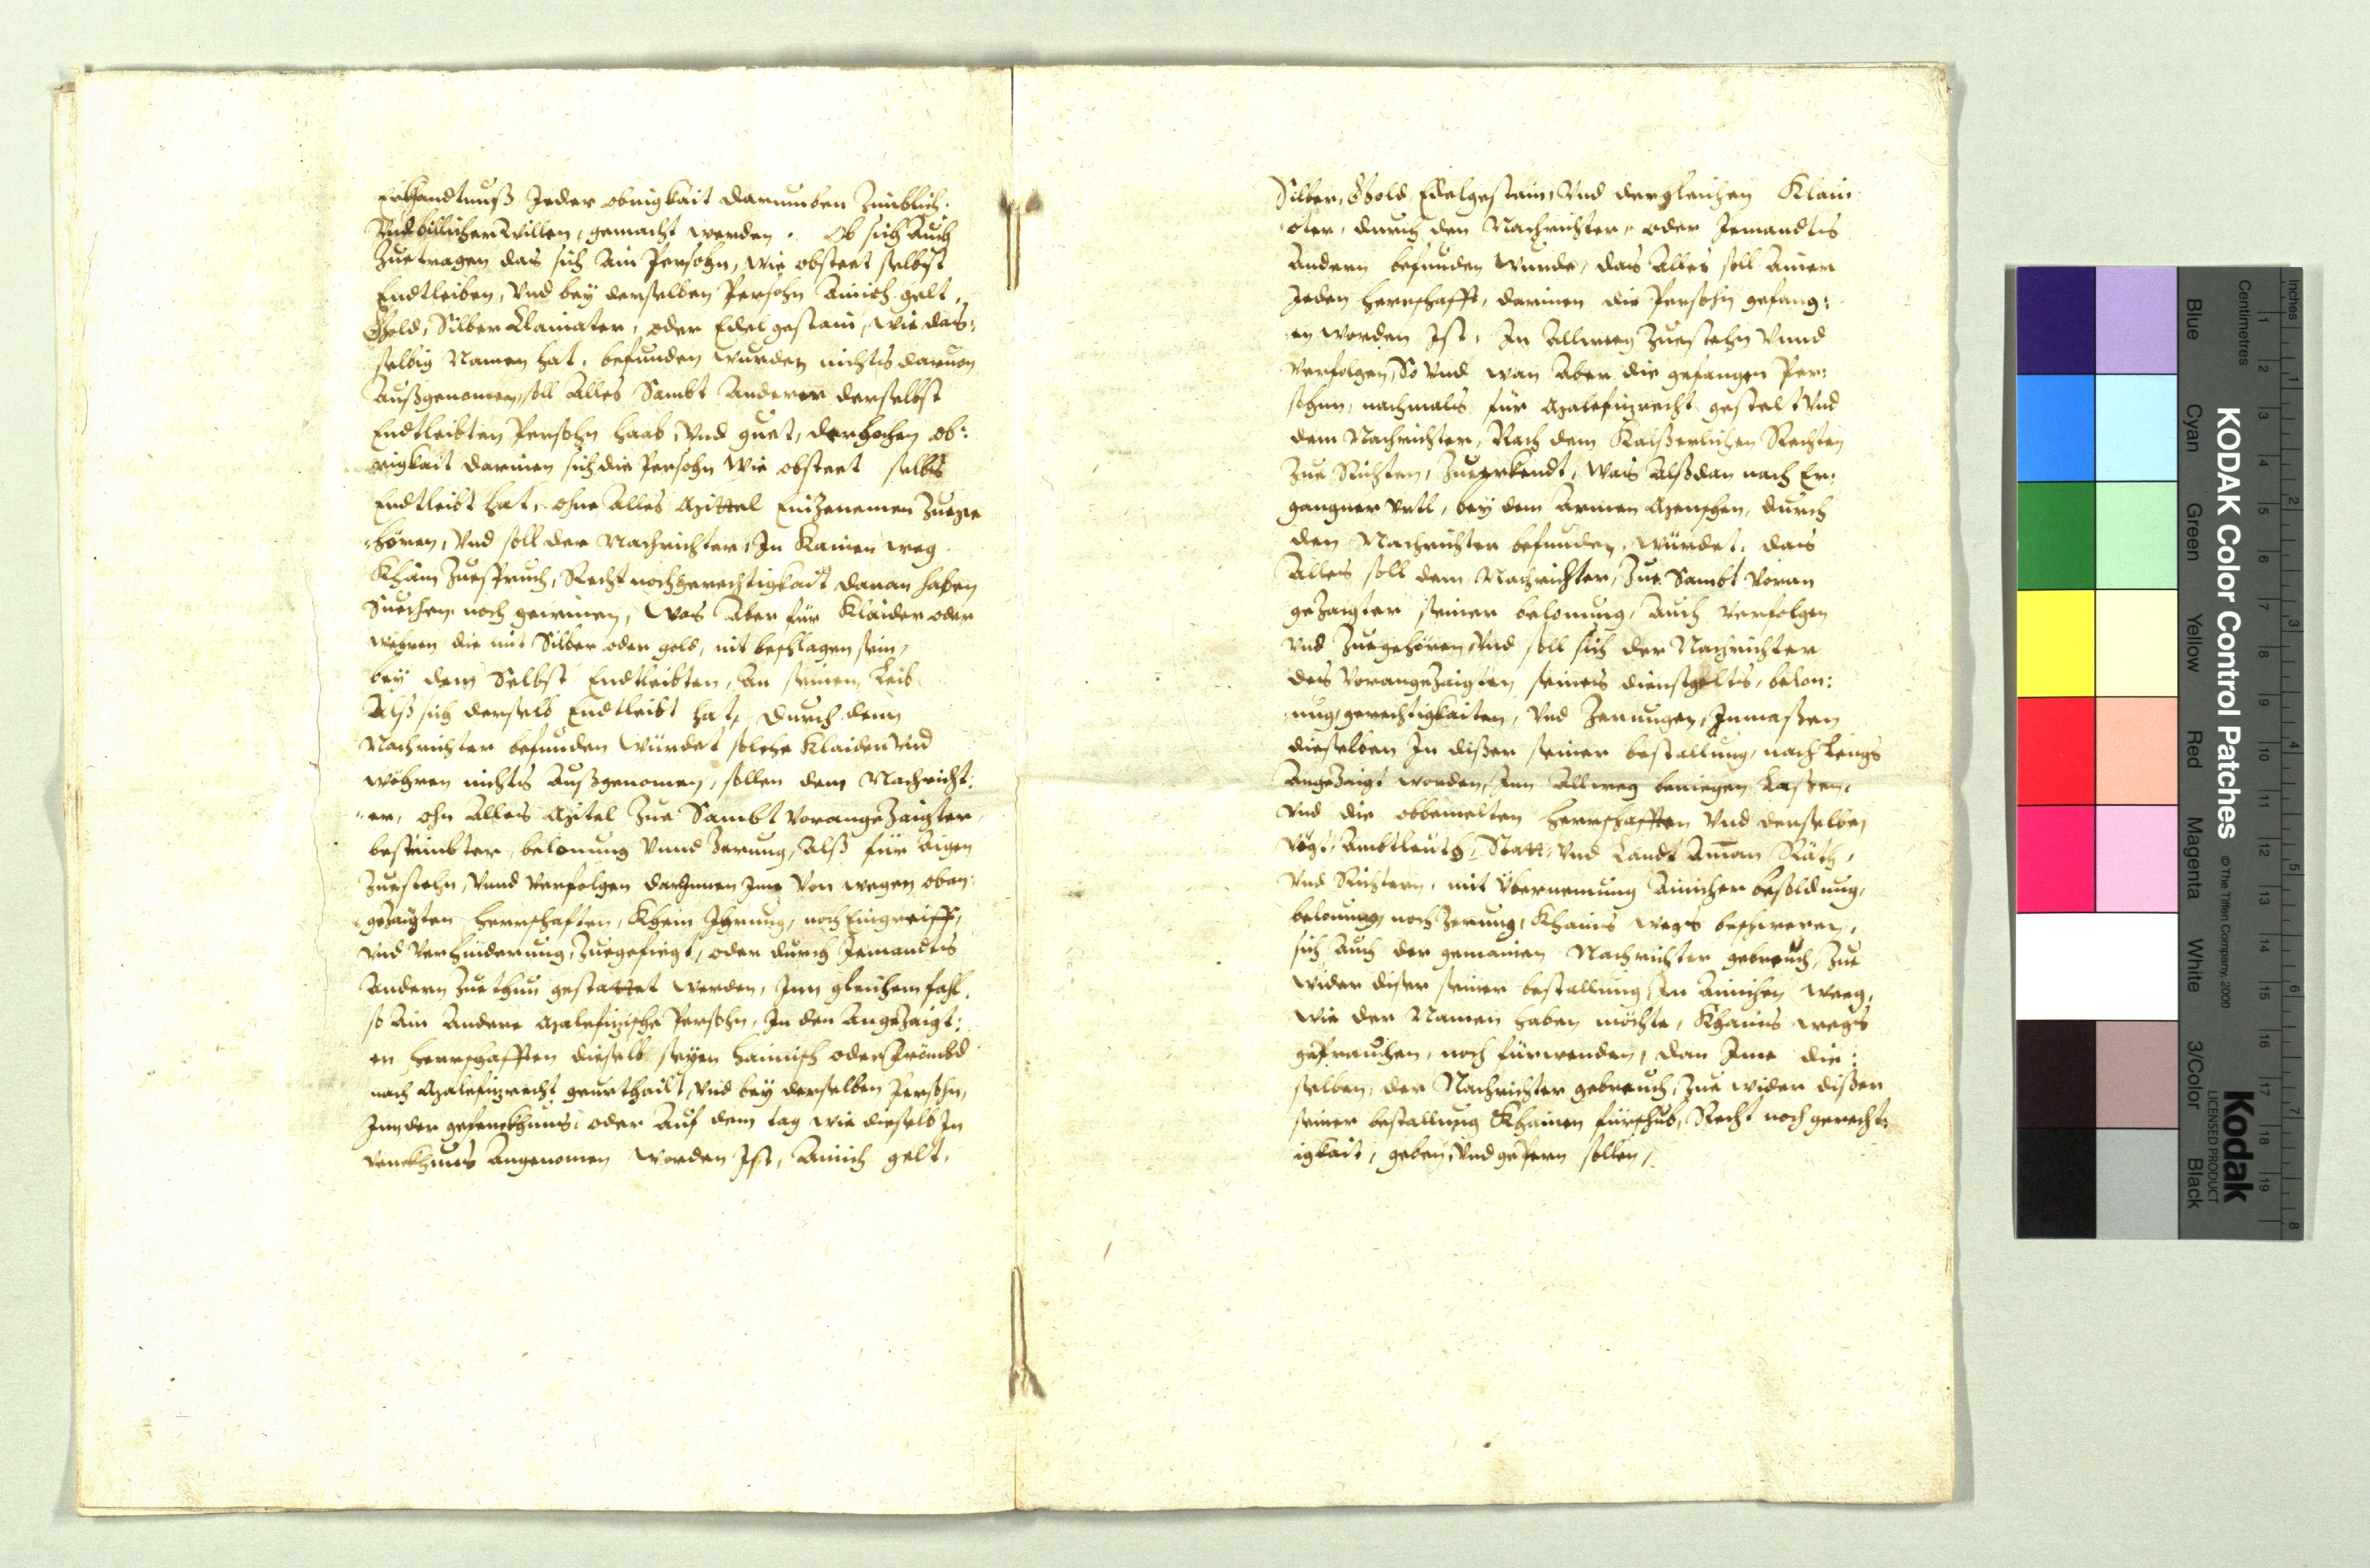 Erkhandtnuß Jeder obrigkait darumben Zimblich.
Vnd billicher Willen, gemacht werden. Ob sich Auch
Zuetragen das sich Ain Persohn, wie obsteet selbst
Endtleiben, Vnd bey derselben Persohn Ainich gelt,
Gold, Silber Clainater, oder Edelgestain, wie das:
selbig Namen hat, befunden wurden nichts daruon
Außgenomen, soll Alles Sambt Anderer derselbst
Endtleibten Persohn haab, Vnd guet, der hochen ob:
rigkait darinen sich die Persohn wie obsteet selbs
Endtleibt hat, ohne Alles Mittel Einzenemen Zuege
hören, Vnd soll der Nachrichter, In Kainen weg
Khain Zuespruch, Recht noch gerechtigkait daran haben
Suechen noch gewinen, Was Aber für Klaider oder
wehren die mit Silber oder gold, nit beschlagen sein,
bey dem Selbst Endtleibten, An seinem Leib
Alß sich derselb Endtleibt hat, durch dem
Nachrichter befunden Würdet solche Klaider Vnd
wöhren nichts Außgenomen, sollen dem Nachricht:
er, ohn Alles Mitel Zue Sambt Vorangezaigter
bestimbter, belonung Vnnd Zerung, Alß für Aigen
Zuestehn, Vnnd Verfolgen darInnen Ime Von wegen oban:
gezaigten herrschaften, Khein Ihrrung, noch Eingreiff,
Vnd Verhinderung, Zuegefiegt, oder durch Jemandts
Andern Zuethun gestattet werden, Inn gleichem fahl,
so Ain Andere Malefizische Persohn, In den Angezaigt:
en herrschafften dieselb seyen haimisch oder Frömbd
nach Malefizrecht geurthailt, Vnd bey derselben Persohn,
Inn der gefenckhnus, oder Auf dem tag wie dieselb In
Venckhnus Angenomen worden Ist, Ainich gelt,
Silber, Gold, Edelgestain, Vnd dergleichen Klain
oter, durch den Nachrichter, oder Jemandts
Andern befunden wurde, das Alles soll Ainer
Jeden herrschafft, darinen die Persohn gefang:
en worden Ist, In Allweg Zuestehn Vnnd
Verfolgen, So Vnd wan Aber die gefangen Per:
sohnn, nachmals für Malefizrecht gestelt Vnd
dem Nachrichter, Nach dem Kaißerlichen Rechten
Zue Richten, Zueerkendt, Was Alßdan nach Er:
gangner Vrtl, bey dem Armen Menschen, durch
den Nachrichter befunden würdet, das
Alles soll dem Nachrichter, Zue Sambt Voran
gezaigter seiner belonung, Auch Verfolgen
Vnd Zuegehören, Vnd soll sich der Nachrichter
des Vorangezaigten seines dienstgelts, belon:
nung, gerechtigkaiten, Vnd Zerungen, Inmaßen
dieselben In dißer seiner bestallung, nach Lengs
Angezaigt worden, Inn Allweg beniegen Laßen,
Vnd die obbemelten herrschafften Vnd derselben
Vögt, Ambtleuth, Statt, Vnd Landt Aman Räth,
Vnd Richtern, mit Übernemung Ainicher besoldung,
belonung, noch Zerung, Khains wegs beschweren,
sich Auch der gemainen Nachrichter gebreuch, Zue
wider dißer seiner bestallung, In Ainichen weeg,
wie der Namen haben möchte, Khains wegs
gebrauchen, noch fürwenden, dan Ime die:
selben, der Nachrichter gebreuch, Zue wider dißer
seiner bestallung Khainen fürschub, Recht noch gerecht:
igkait, geben, Vnd sollen,
KODAK Color Control Patches
© The Tiffen Company, 2000
Kodak
LICENSED PRODUCT
Inches
Centimetres
Blue
Cyan
Green
Yellow
Red
Magenta
White
3/Color
Black